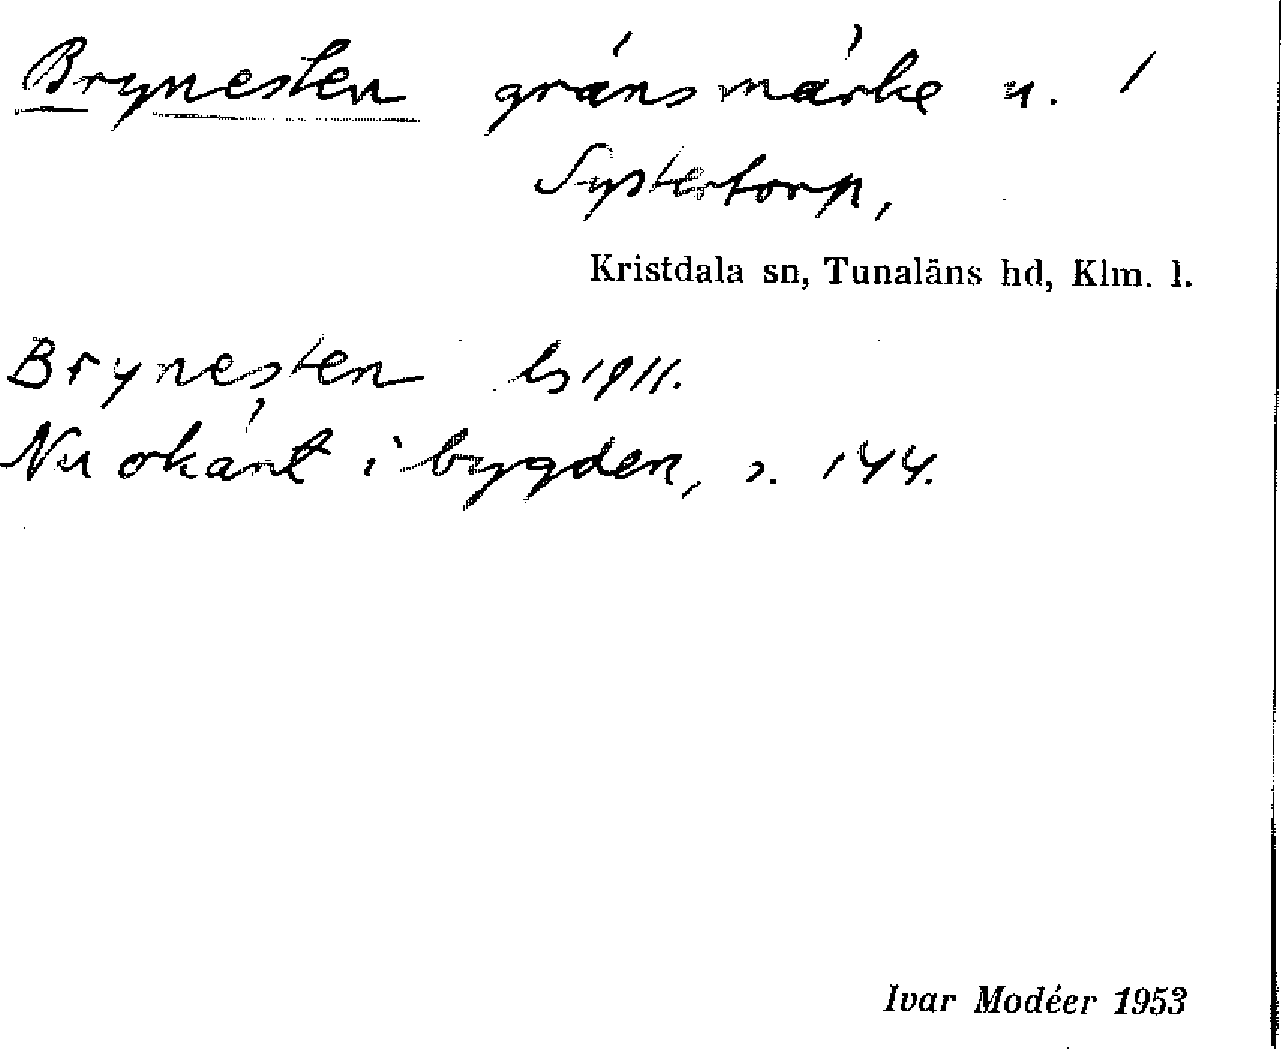 Brynesten gränsmärke u. 1
Systertorp,
Kristdala sn, Tunaläns hd, Klm. l.
Brynesten ls 1911.
Nu okänt i bygden, s. 144.
Ivar Modéer 1953